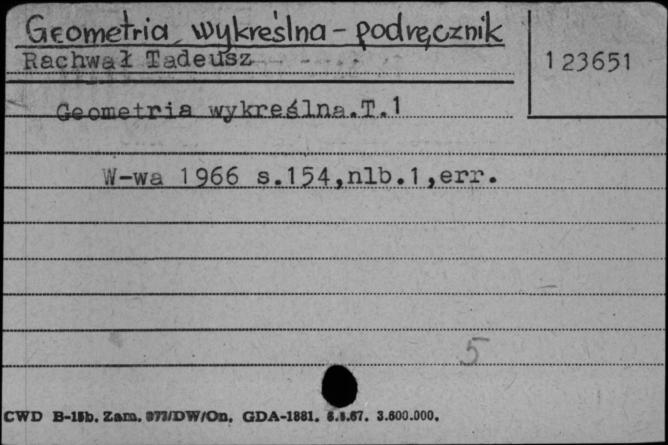 Geometria wykreślna - podręcznik
Rachwał Tadeusz
123651
Geometria wykreślna.T.1
W-wa 1966 s.154,nlb.1,err.
5
CWD B-15b. Zam. /DW/On. GDA-1881. 3.600.000.